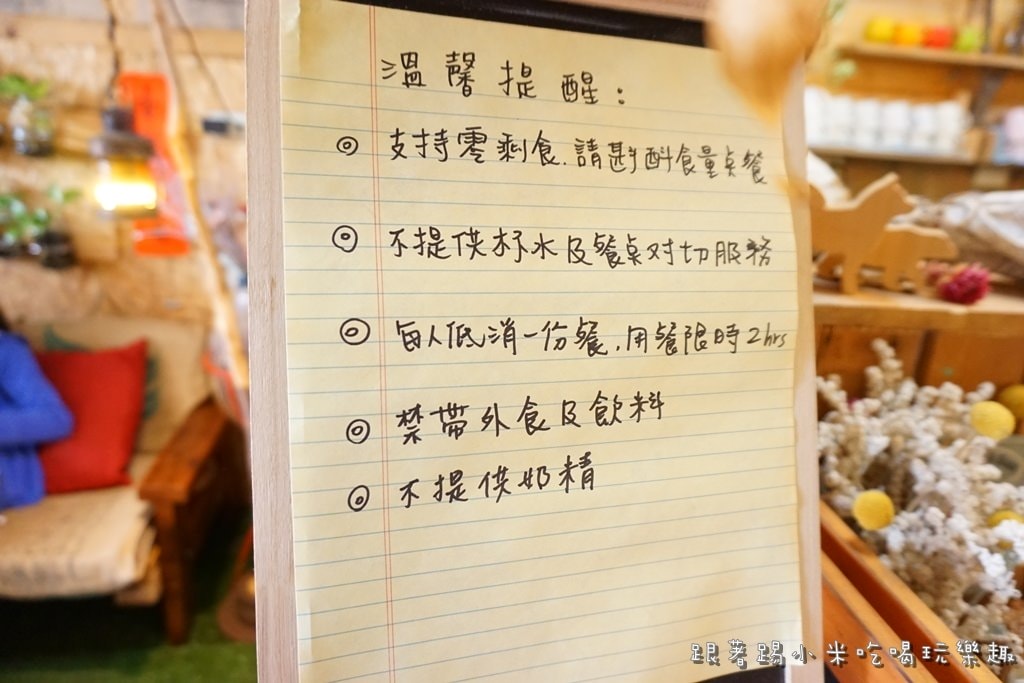 溫馨提醒：
◎ 支持零剩食，請斟酌食量点餐
◎ 不提供杯水及餐桌对切服務
◎ 每人低消一份餐，用餐限時2hrs
◎ 禁帶外食及飲料
◎ 不提供奶精
跟著踢小米吃喝玩樂趣